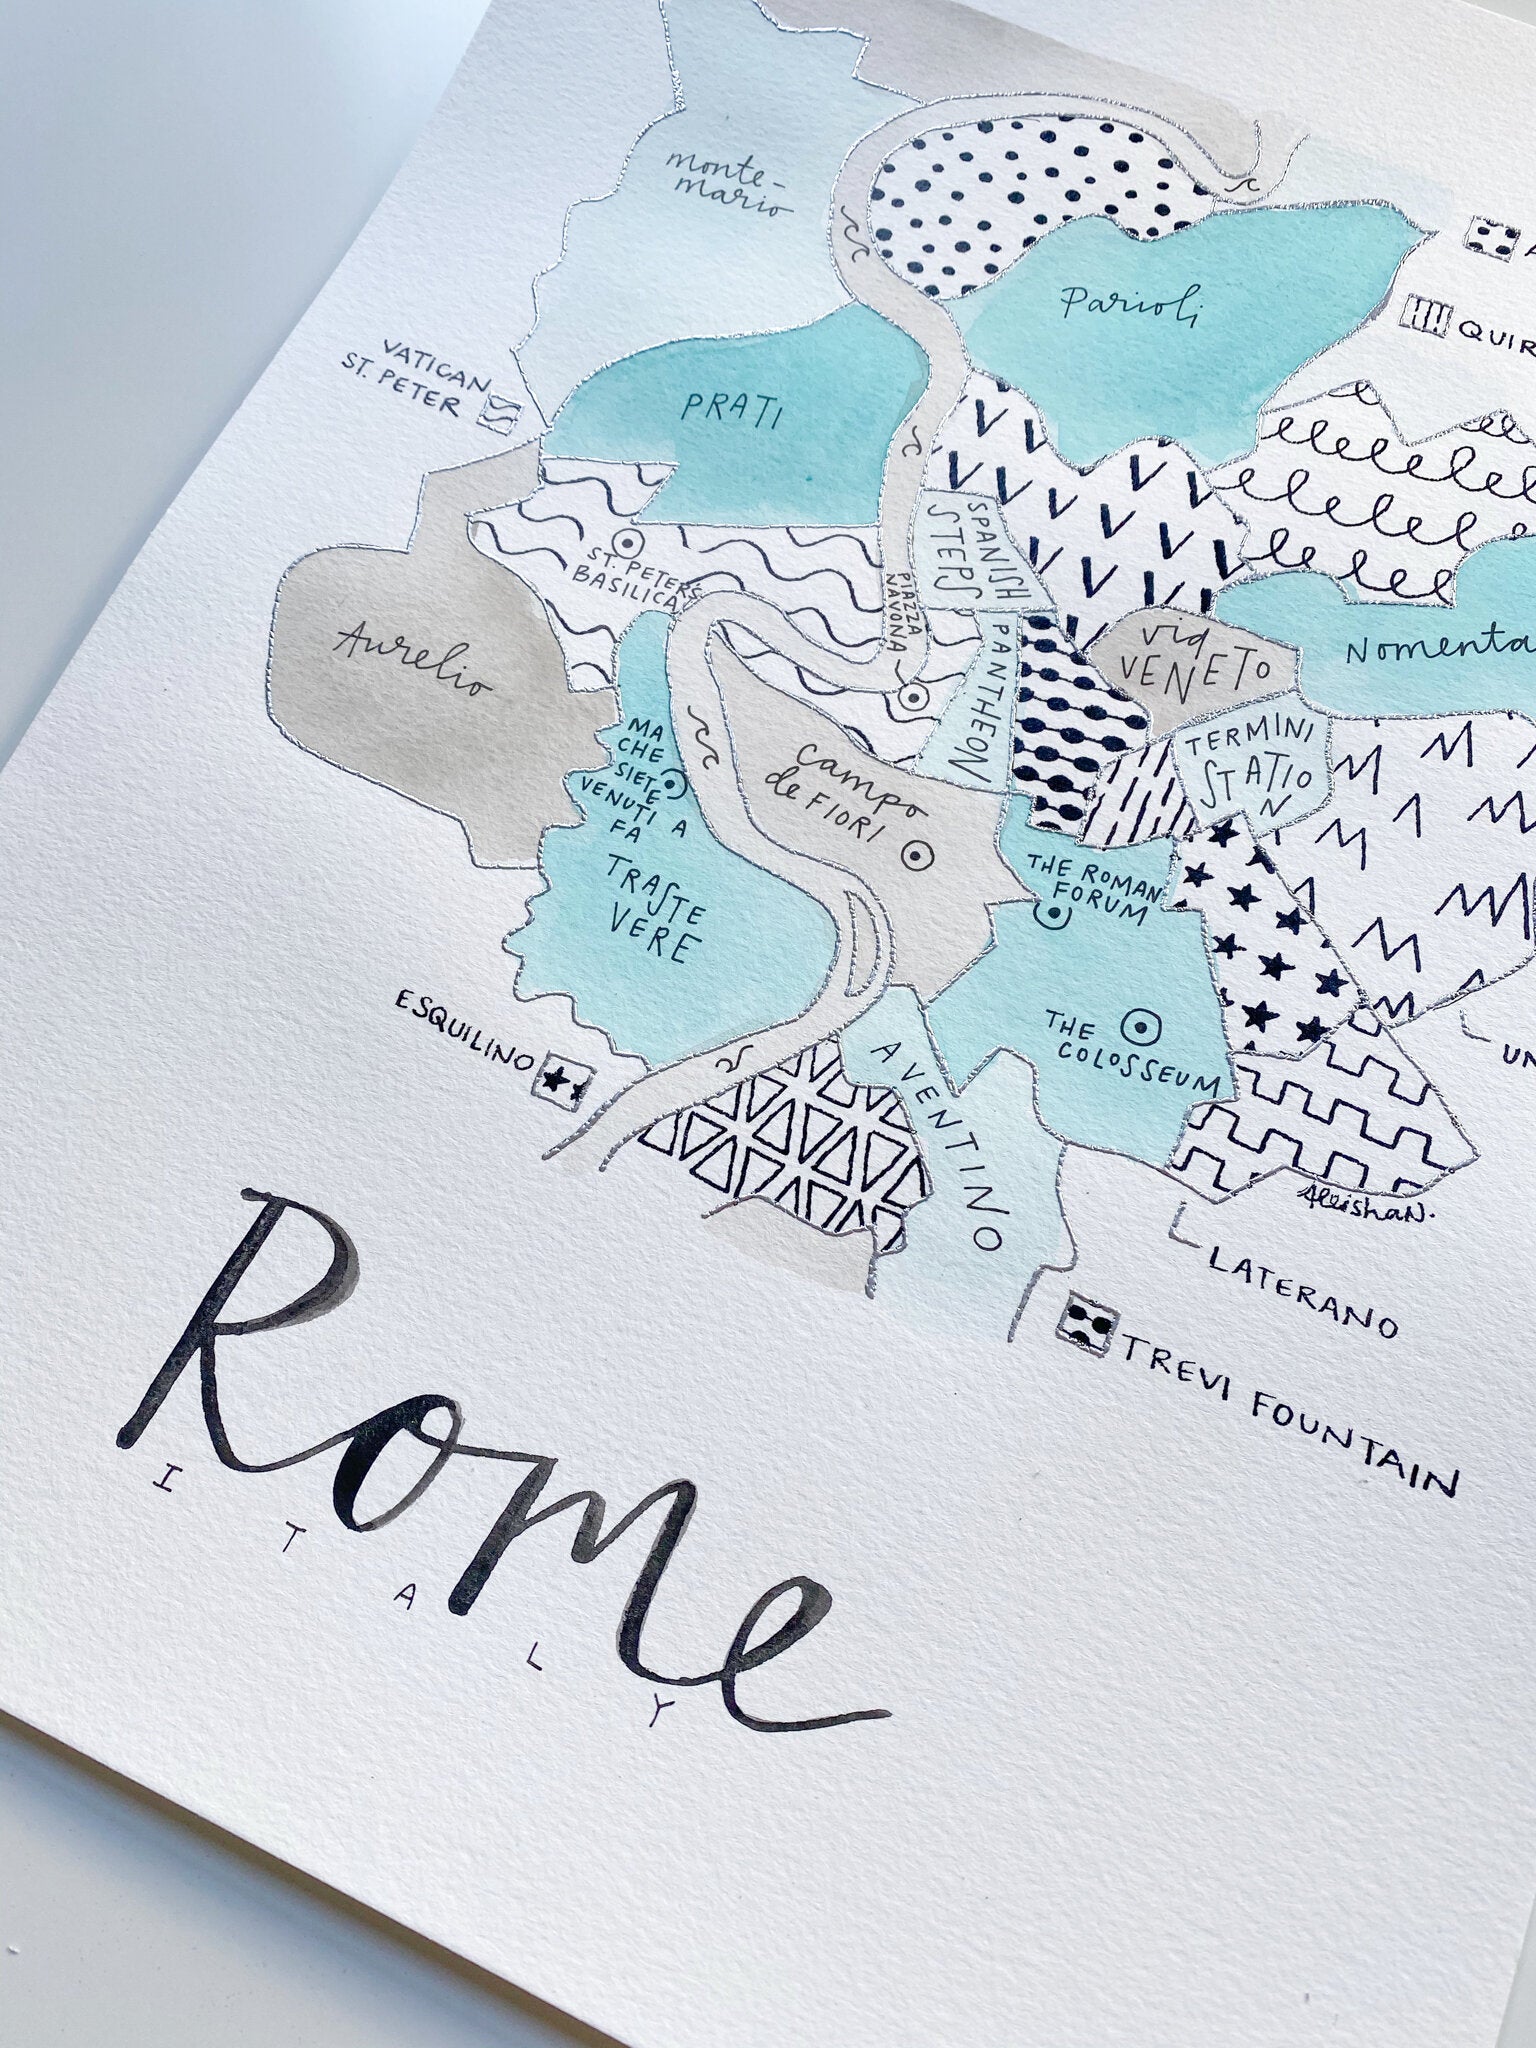 monte-
mario
Parioli
QUIR
VATICAN
ST. PETER
PRATI
SPANISH
STEPS
ST. PETER'S
BASILICA
PIAZZA
NAVONA
PANTHEON
Via
VENETO
Nomenta
Aurelio
TERMINI
STATIO
N
MA
CHE
SIETE
VENUTI A
FA
Campo
de FIORI
TRASTE
VERE
THE ROMAN
FORUM
THE
COLOSSEUM
UN
ESQUILINO
AVENTINO
AleishaN.
LATERANO
TREVI FOUNTAIN
Rome
ITALY